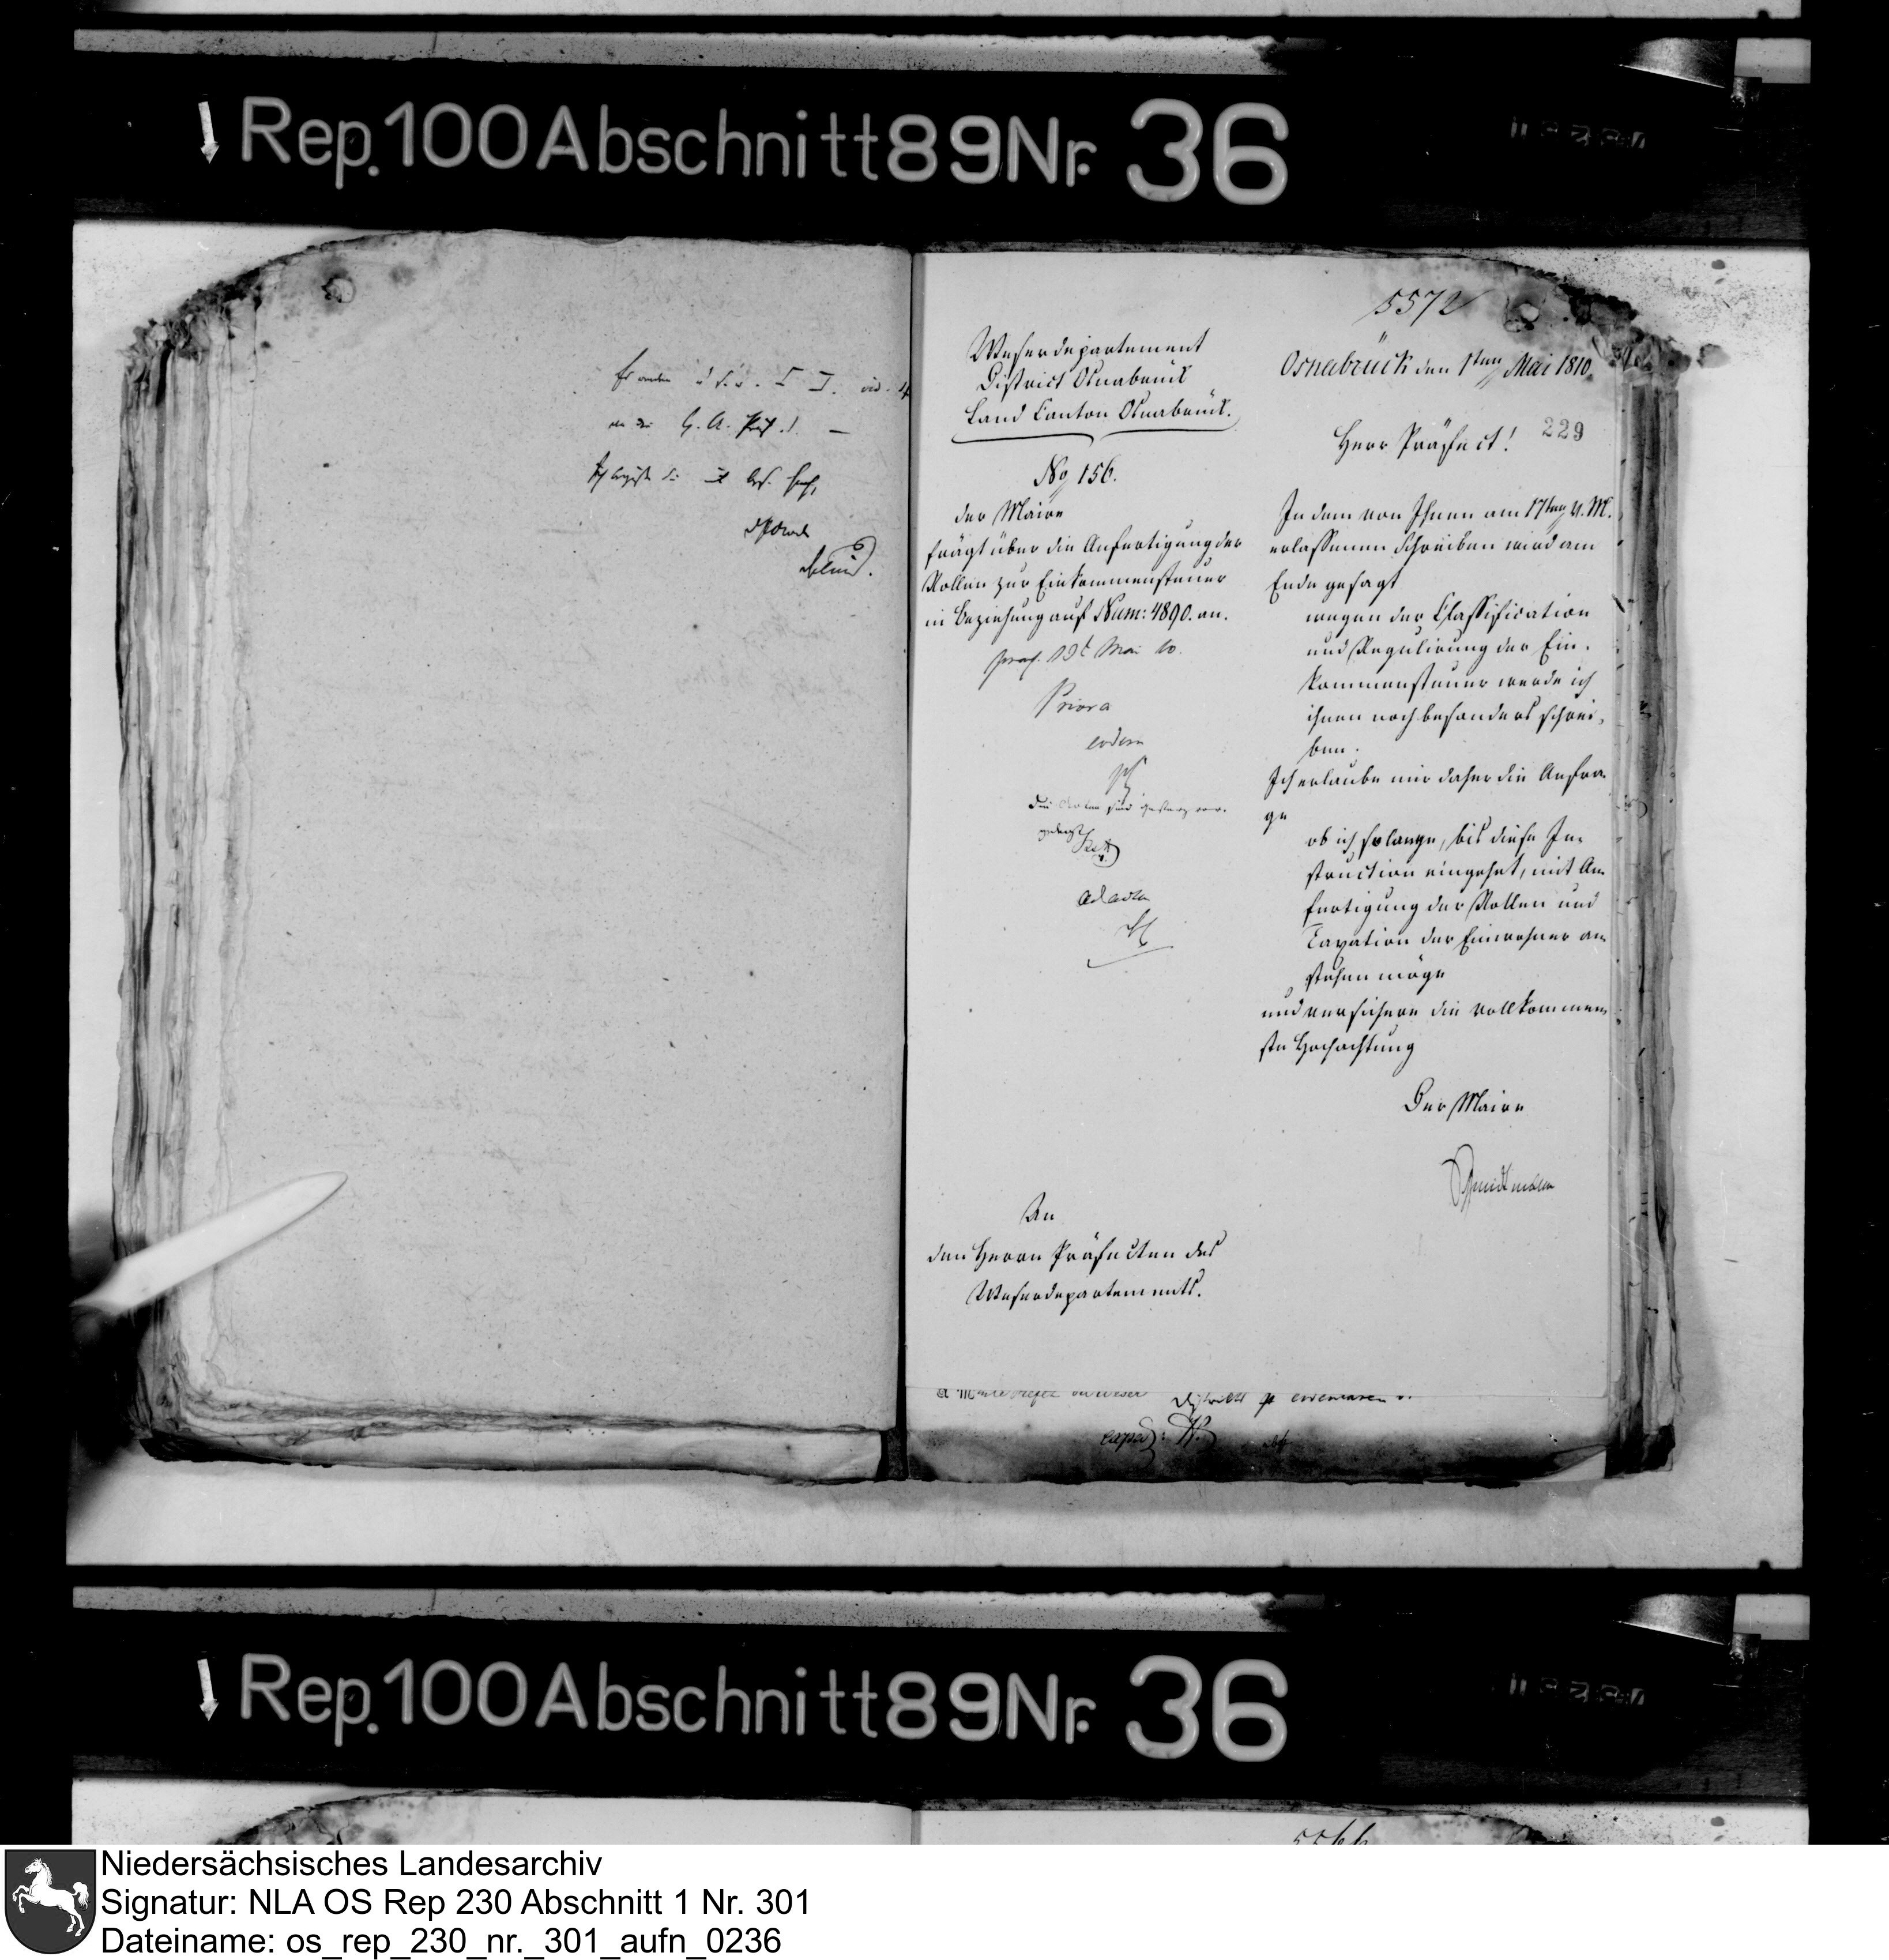 Rep. 100 Abschnitt 89 Nr. 36
5572
Weserdepartement
District Osnabrück
Land Canton Osnabrück.
No 156.
der Maire
frägt über die Anfertigung der
Rollen zur Einkommensteuer
in Beziehung auf Num: 4890. an.
praes. Mai 10.
Priora
eodem
Die Acten sind gestern vor-
gelegt
ad acta
An
den Herrn Präfecten des
Weserdepartements.
Osnabrück den 1ten Mai 1810
229
Herr Präfect!
In dem von Ihnen am 17ten v. M.
erlassenen Schreiben wird am
Ende gesagt
wegen der Classification
und Regulirung der Ein-
kommensteuer werde ich
ihnen noch besonders schrei-
ben.
Ich erlaube mir daher die Anfra-
ge
ob ich solange, bis diese In-
struction eingehet, mit An-
fertigung der Rollen und
Taxation der Einwohner an-
stehen möge
und versichere die vollkommen-
ste Hochachtung
Der Maire
Rep. 100 Abschnitt 89 Nr. 36
5566
Niedersächsisches Landesarchiv
Signatur: NLA OS Rep 230 Abschnitt 1 Nr. 301
Dateiname: os_rep_230_nr._301_aufn_0236